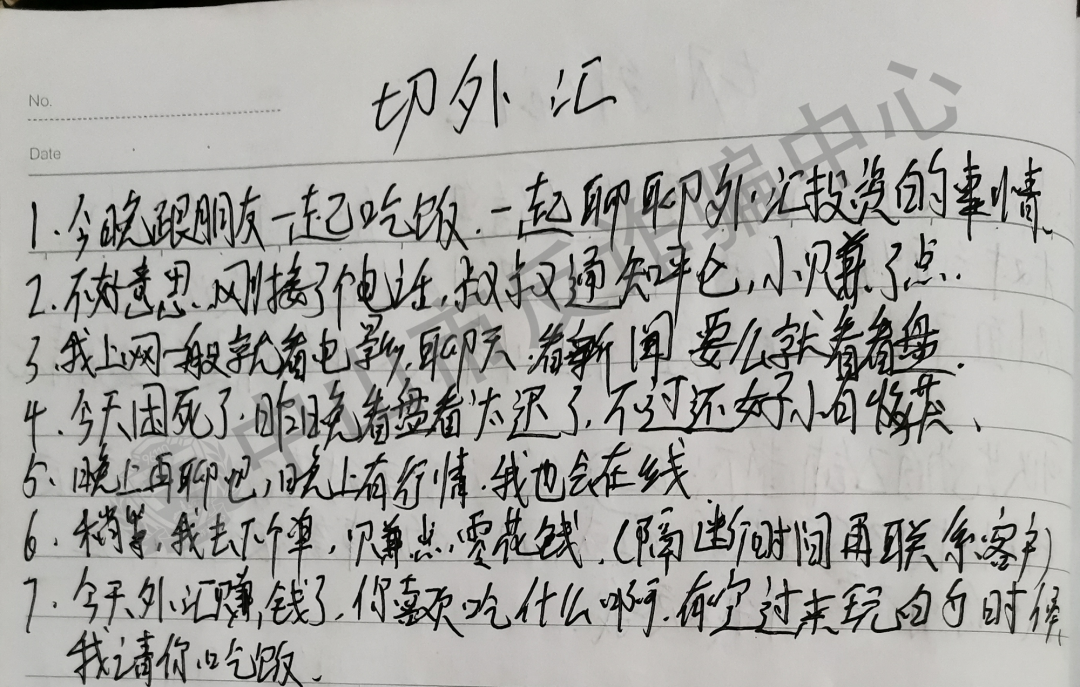 No.
切外汇
Date
1、今晚跟朋友一起吃饭.一起聊聊外汇投资的事情、
2、不好意思、刚接了个电话,叔叔通知平仓,小赚了点.
3、我上网一般就看电影,聊天、看新闻 要么就看看盘.
4、今天困死了、昨晚看盘看太迟了,不过还好小有收获、
5、晚上再聊吧,晚上有行情、我也会在线
6、稍等,我去下个单,赚点零花钱.(隔断时间再联系客户)
7、今天外汇赚钱了,你喜欢吃什么啊,有空过来玩的时候
我请你吃饭、
中山市反诈骗中心